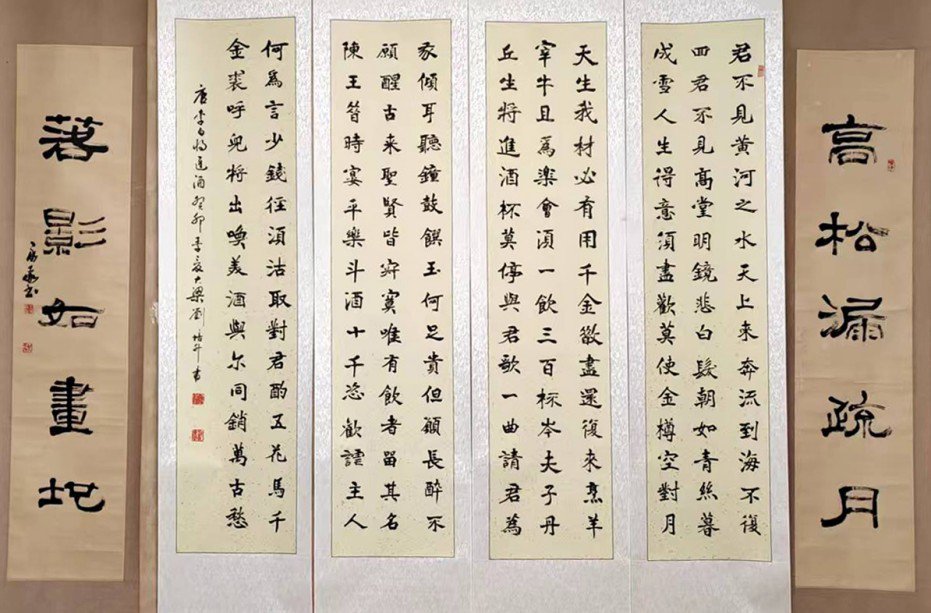 高松漏疏月
君不見黃河之水天上來奔流到海不復
回君不見高堂明鏡悲白髮朝如青絲暮
成雪人生得意須盡歡莫使金樽空對月
天生我材必有用千金散盡還復來烹羊
宰牛且為樂會須一飲三百杯岑夫子丹
丘生將進酒杯莫停與君歌一曲請君為
我傾耳聽鐘鼓饌玉何足貴但願長醉不
願醒古來聖賢皆寂寞唯有飲者留其名
陳王昔時宴平樂斗酒十千恣歡謔主人
何為言少錢徑須沽取對君酌五花馬千
金裘呼兒將出喚美酒與尔同銷萬古愁
唐李白將進酒癸卯季夏大梁劉培升書
落影如畫地